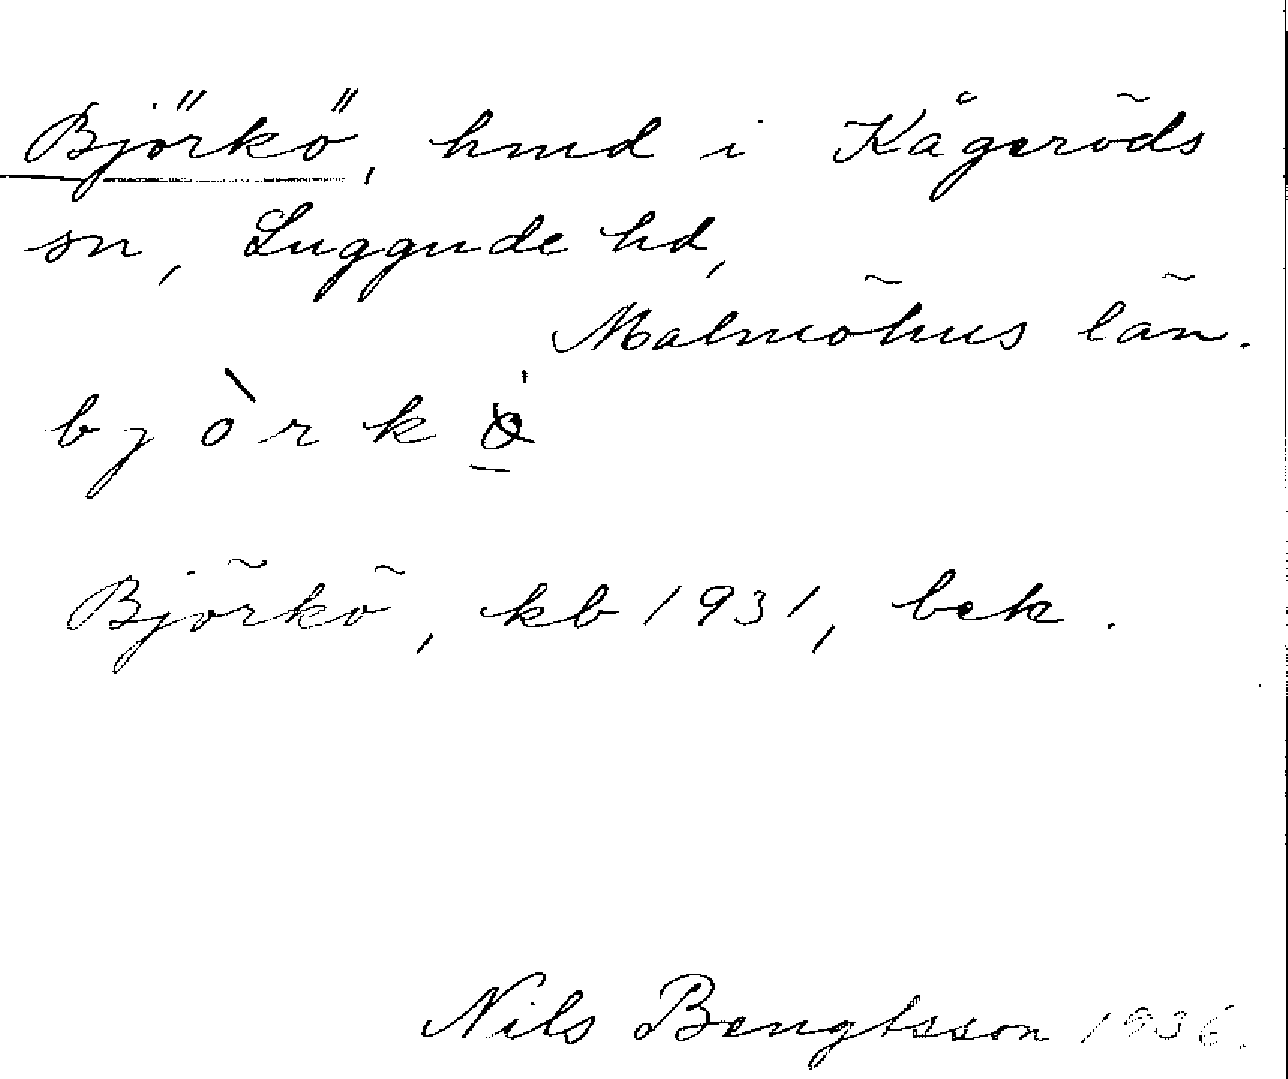 Björkö, hmd i Kågeröds
sn, Luggude hd,
Malmöhus län.
bjòrk
Björkö, kb 1931, bek.
Nils Bengtsson 1936.